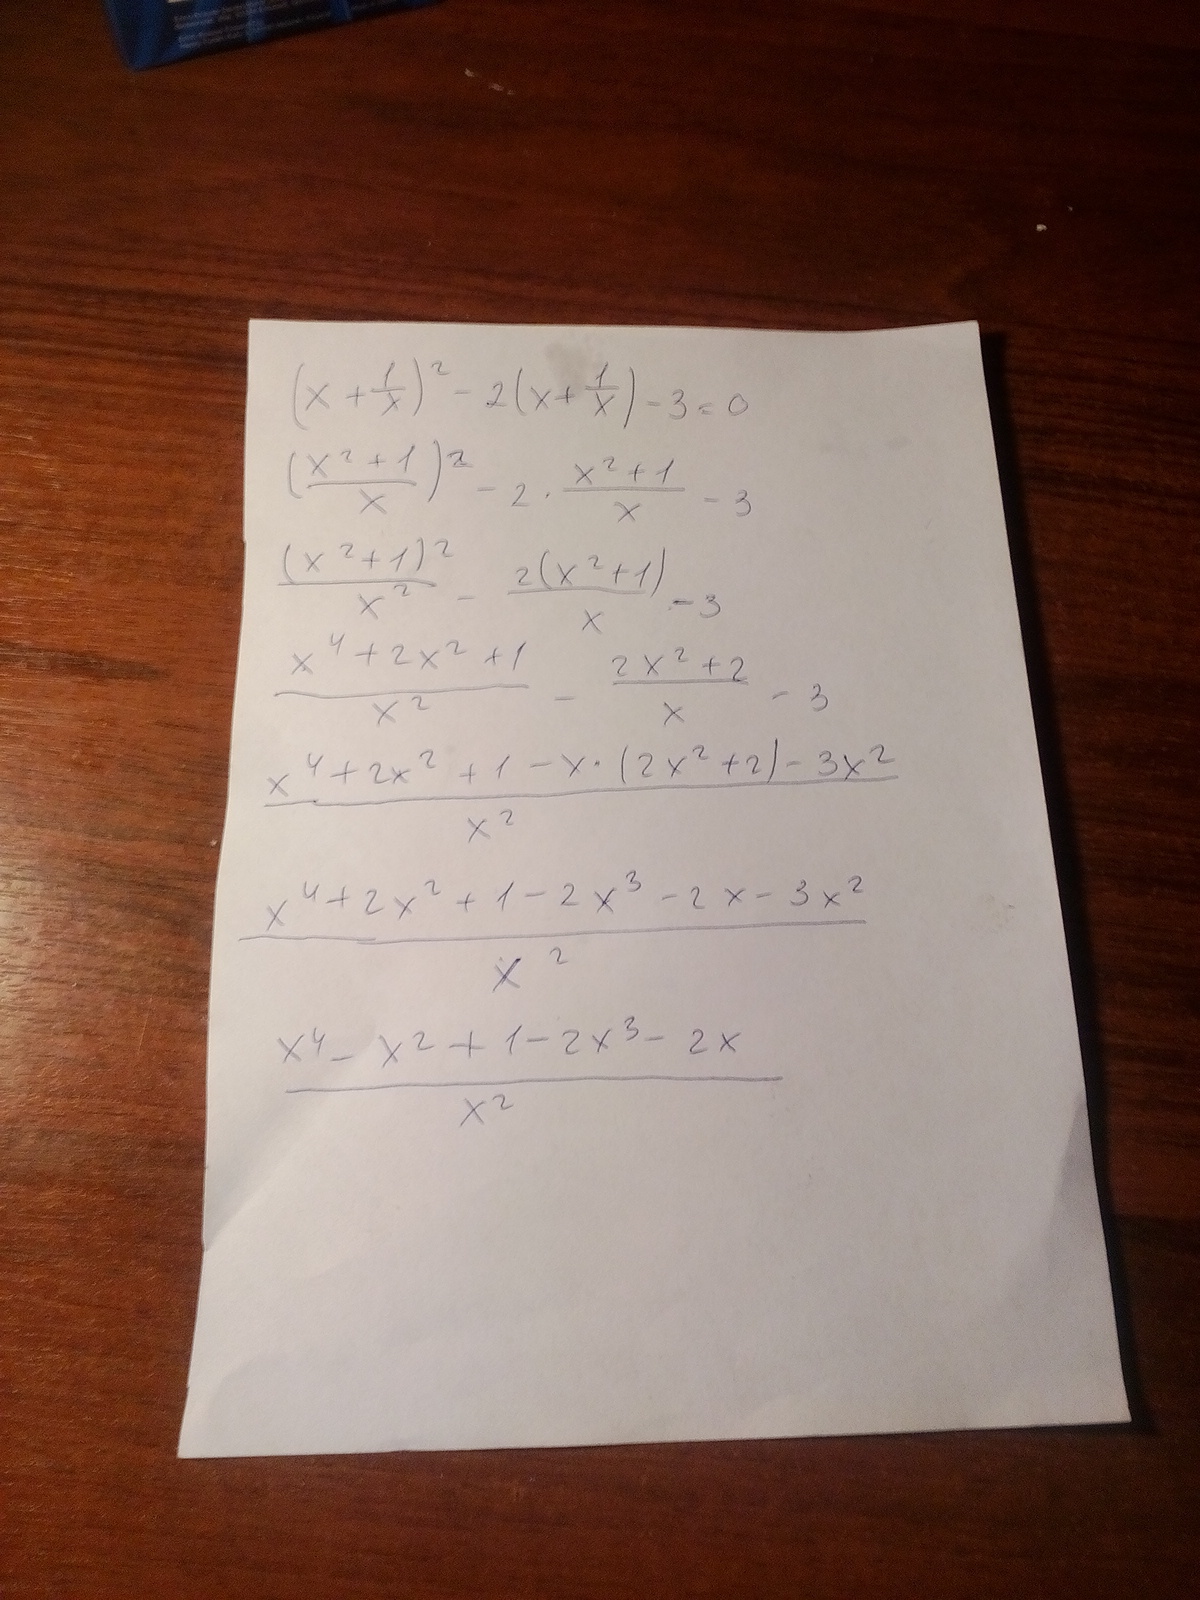 (x + 1/x)² - 2(x + 1/x) - 3 = 0
((x² + 1)/x)² - 2 · (x² + 1)/x - 3
(x² + 1)²/x² - 2(x² + 1)/x - 3
(x⁴ + 2x² + 1)/x² - (2x² + 2)/x - 3
(x⁴ + 2x² + 1 - x · (2x² + 2) - 3x²)/x²
(x⁴ + 2x² + 1 - 2x³ - 2x - 3x²)/x²
(x⁴ - x² + 1 - 2x³ - 2x)/x²